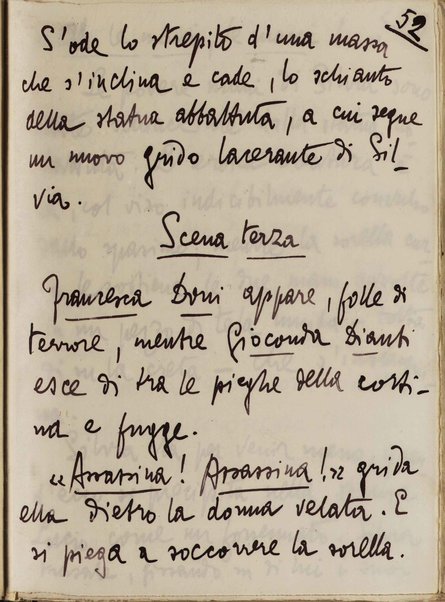 52
S'ode lo strepito d'una massa
che s'inclina e cade, lo schianto
della statua abbattuta, a cui segue
un nuovo grido lacerante di Sil-
via.
Scena terza
Francesca Doni appare, folle di
terrore, mentre Gioconda Dianti
esce di tra le pieghe della corti-
na e fugge.
«Assassina! Assassina!» grida
ella dietro la donna velata. E
si piega a soccorrere la sorella.